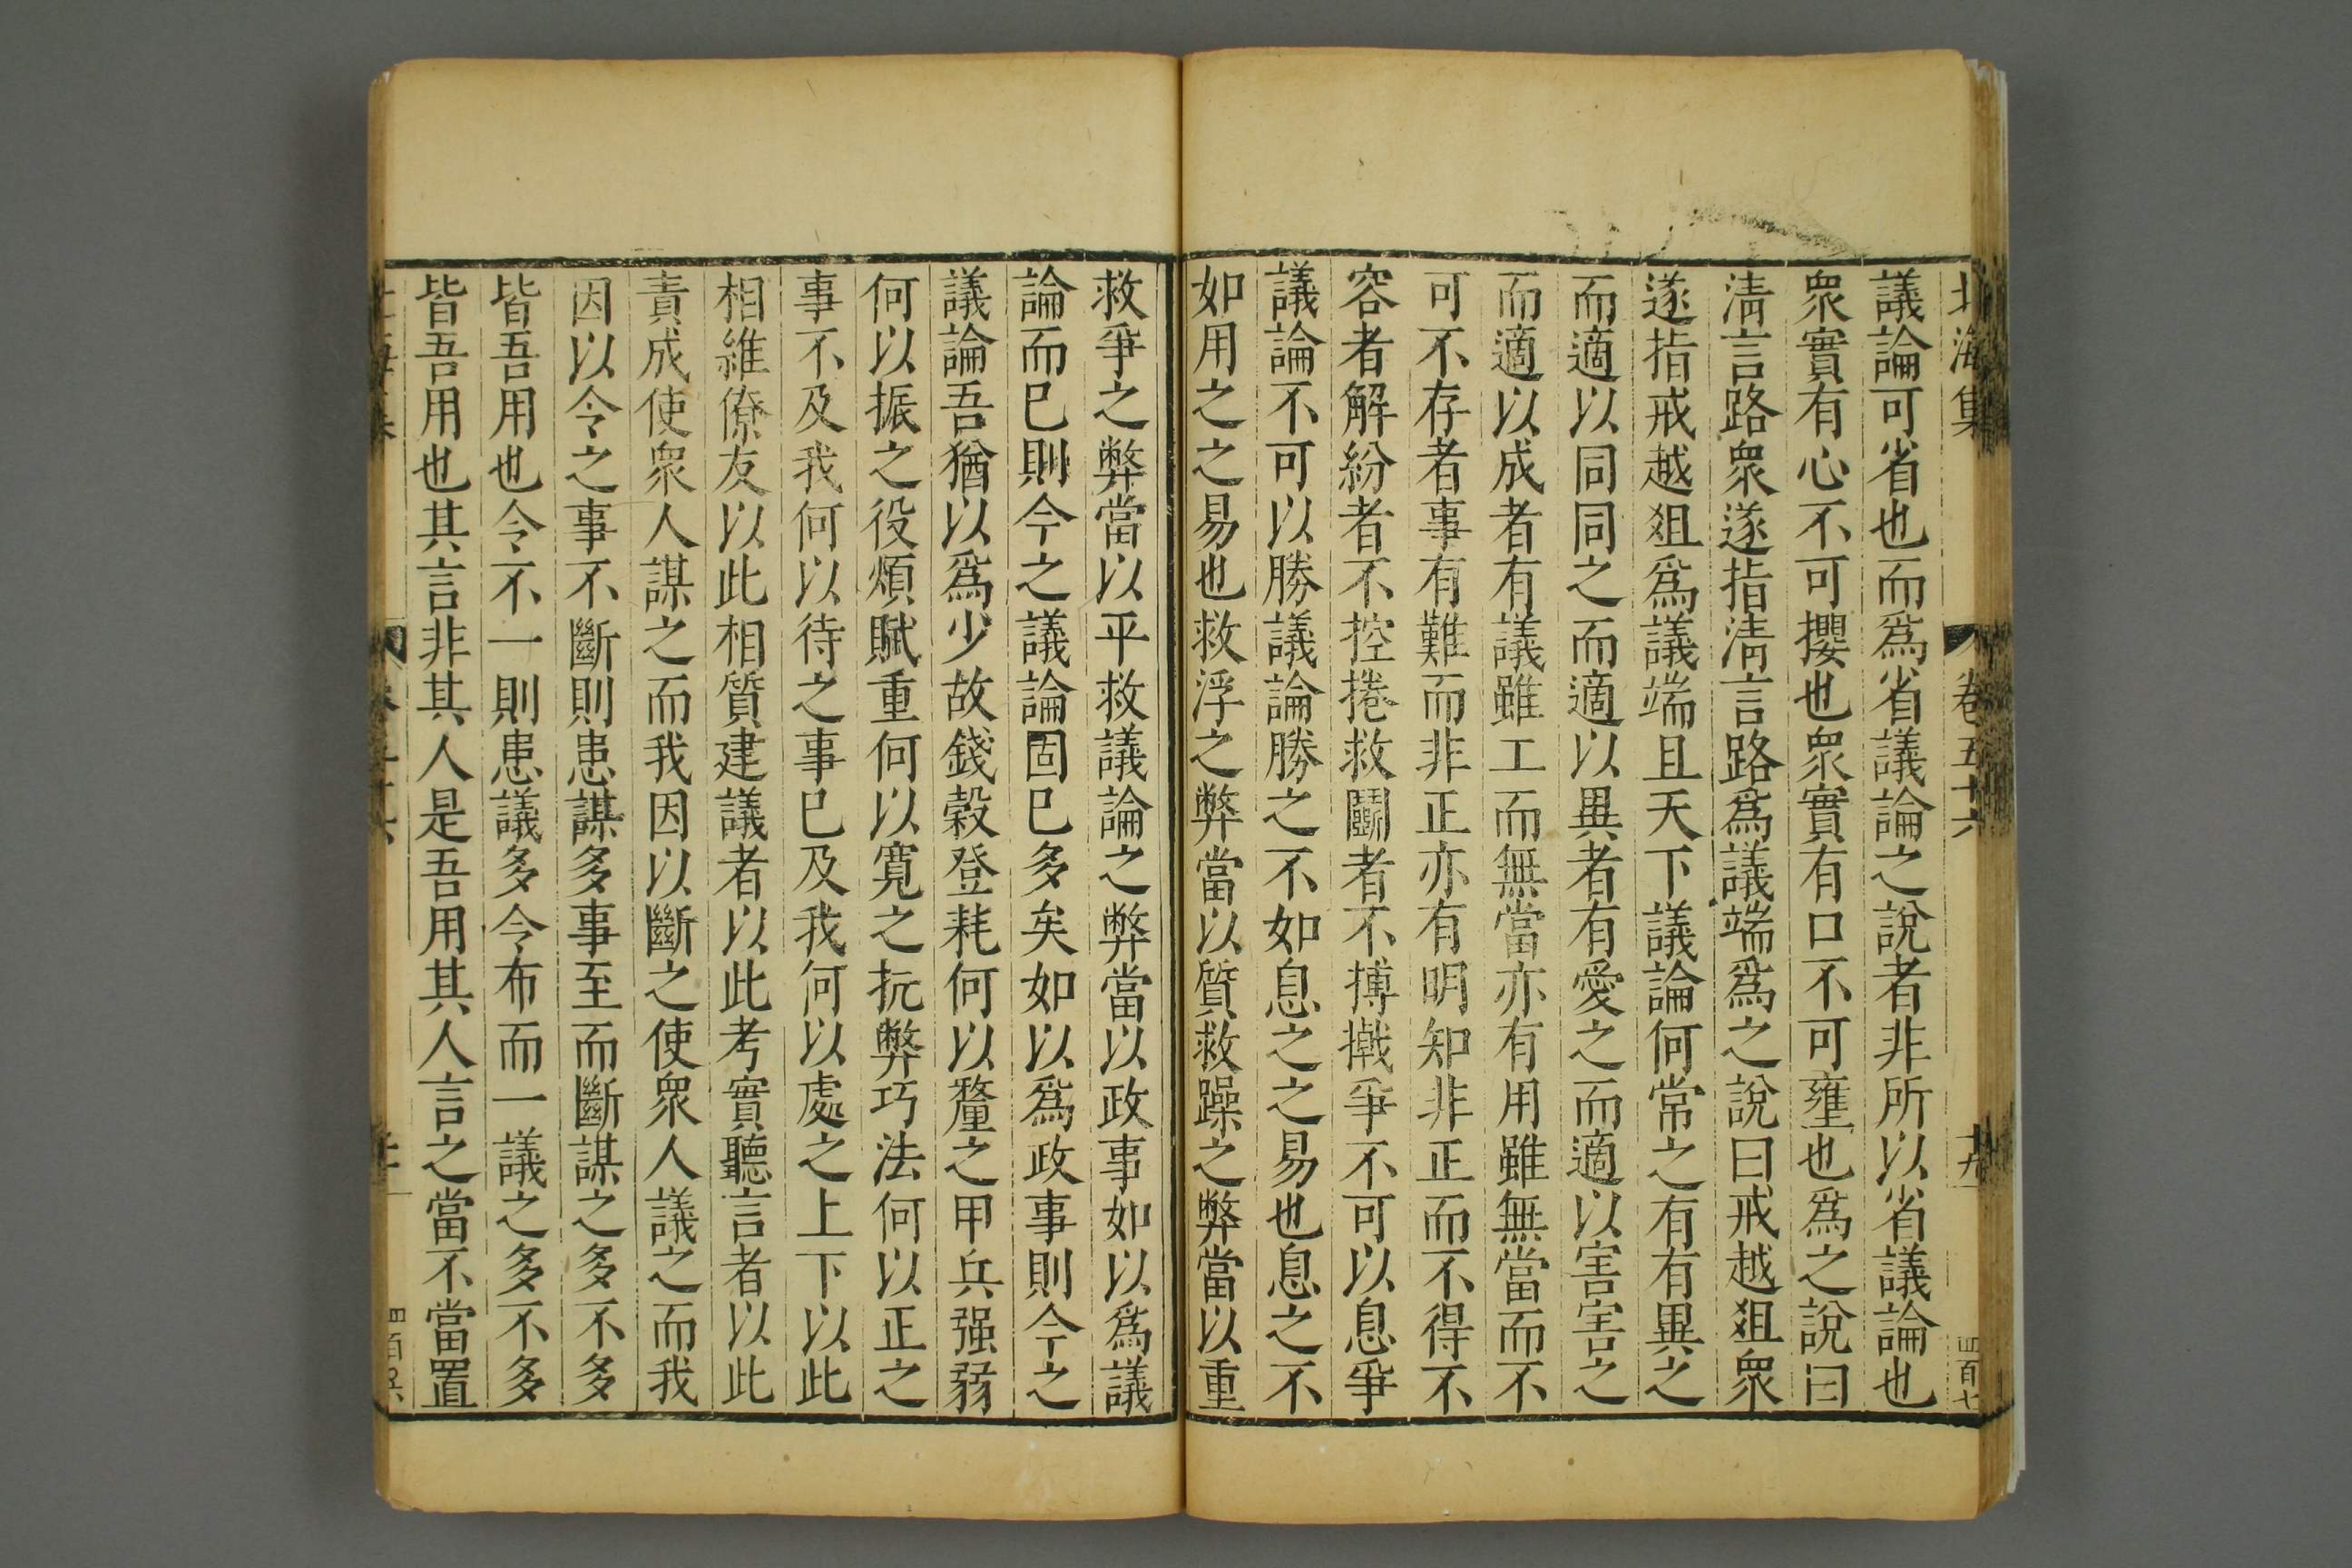 北海集 卷五十六 十九 四百七
議論可省也而爲省議論之說者非所以省議論也
衆實有心不可攖也衆實有口不可壅也爲之說曰
淸言路衆遂指淸言路爲議端爲之說曰戒越爼衆
遂指戒越爼爲議端且天下議論何常之有有異之
而適以同同之而適以異者有愛之而適以害害之
而適以成者有議雖工而無當亦有用雖無當而不
可不存者事有難而非正亦有明知非正而不得不
容者解紛者不控捲救鬭者不摶撠爭不可以息爭
議論不可以勝議論勝之不如息之之易也息之不
如用之之易也救浮之弊當以質救躁之弊當以重
救爭之弊當以平救議論之弊當以政事如以爲議
論而已則今之議論固已多矣如以爲政事則今之
議論吾猶以爲少故錢穀登耗何以釐之甲兵强弱
何以振之役煩賦重何以寬之抏弊巧法何以正之
事不及我何以待之事已及我何以處之上下以此
相維僚友以此相質建議者以此考實聽言者以此
責成使衆人謀之而我因以斷之使衆人議之而我
因以令之事不斷則患謀多事至而斷謀之多不多
皆吾用也令不一則患議多令布而一議之多不多
皆吾用也其言非其人是吾用其人言之當不當置